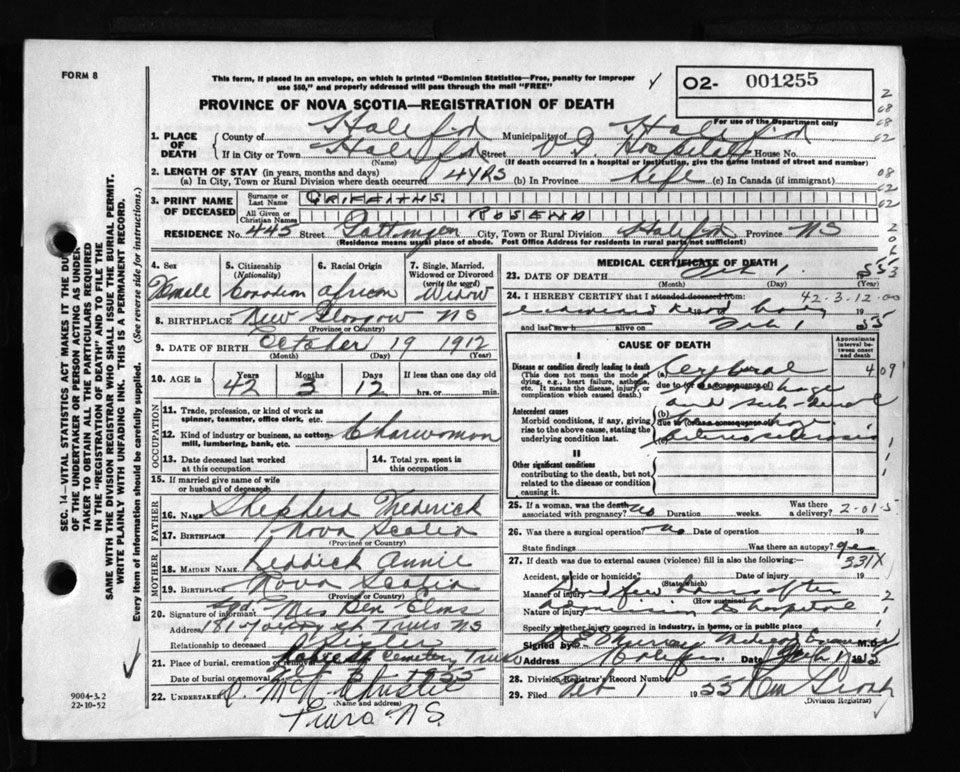 FORM 8
This form, if placed in an envelope, on which is printed "Dominion Statistics—Free, penalty for improper
use $50," and properly addressed will pass through the mail "FREE"
02- 001255
For use of the Department only
PROVINCE OF NOVA SCOTIA—REGISTRATION OF DEATH
1. PLACE OF DEATH
County of Halifax Municipality of Halifax
If in City or Town Halifax Street V G Hospital House No.
(Name) (If death occurred in a hospital or institution, give the name instead of street and number)
2. LENGTH OF STAY (in years, months and days)
(a) In City, Town or Rural Division where death occurred 4 YRS (b) In Province Life (c) In Canada (if immigrant)
3. PRINT NAME OF DECEASED
Surname or Last Name GRIFFITHS
All Given or Christian Names ROSENA
RESIDENCE No. 445 Street Gottingen City, Town or Rural Division Halifax Province NS
(Residence means usual place of abode. Post Office Address for residents in rural parts not sufficient)
4. Sex
5. Citizenship (Nationality)
6. Racial Origin
7. Single, Married, Widowed or Divorced (write the word)
Female Canadian African Widow
8. BIRTHPLACE New Glasgow NS
(Province or Country)
9. DATE OF BIRTH October 19 1912
(Month) (Day) (Year)
10. AGE in Years Months Days If less than one day old
42 3 12 hrs. or min.
OCCUPATION
11. Trade, profession, or kind of work as
spinner, teamster, office clerk, etc.
12. Kind of industry or business, as cotton-
mill, lumbering, bank, etc.
Charwoman
13. Date deceased last worked
at this occupation
14. Total yrs. spent in
this occupation
15. If married give name of wife
or husband of deceased
FATHER
16. Name Shepherd Frederick
17. Birthplace Nova Scotia
(Province or Country)
MOTHER
18. MAIDEN NAME Reddick Annie
19. BIRTHPLACE Nova Scotia
(Province or Country)
20. Signature of informant Sgd. Mrs Ben Elms
Address St Truro NS
Relationship to deceased
21. Place of burial, cremation or removal Cemetery, Truro
Date of burial or removal 55
22. UNDERTAKER Christie
(Name and address)
Truro N.S.
9004-3.2
22-10-52
MEDICAL CERTIFICATE OF DEATH
23. DATE OF DEATH Feb 1. 1955
(Month) (Day)
24. I HEREBY CERTIFY that I attended deceased from: 42-3-12-00
19
and last saw h alive on Feb 1 1955
CAUSE OF DEATH
Approximate interval between onset and death
I
Disease or condition directly leading to death
(This does not mean the mode of dying, e.g., heart failure, asthenia, etc. It means the disease, injury, or complication which caused death.)
(a) Cerebral
due to (or as a consequence of)
Antecedent causes
Morbid conditions, if any, giving rise to the above cause, stating the underlying condition last.
(b)
due to (or as a consequence of)
(c) Arteriosclerosis
II
Other significant conditions
contributing to the death, but not
related to the disease or condition
causing it.
25. If a woman, was the death associated with pregnancy? no Duration weeks. Was there a delivery?
26. Was there a surgical operation no Date of operation 19
State findings Was there an autopsy?
27. If death was due to external causes (violence) fill in also the following: 331X
Accident, suicide or homicide? Date of injury 19
(State which)
Manner of injury Died few hours after
(How sustained)
Nature of injury admission to hospital
Specify whether injury occurred in industry, in home, or in public place
Signed by Murray Medical Examiner M.D.
Address Halifax Date Feb 1 1955
28. Division Registrar's Record Number
29. Filed Feb 1 1955
(Division Registrar)
SEC. 14—VITAL STATISTICS ACT MAKES IT THE DUTY
OF THE UNDERTAKER OR PERSON ACTING AS UNDER-
TAKER TO OBTAIN ALL THE PARTICULARS REQUIRED
IN THE "REGISTRATION OF DEATH" AND TO FILE THE
SAME WITH THE DIVISION REGISTRAR WHO SHALL ISSUE THE BURIAL PERMIT.
WRITE PLAINLY WITH UNFADING INK. THIS IS A PERMANENT RECORD.
Every item of information should be carefully supplied. (See reverse side for instructions.)